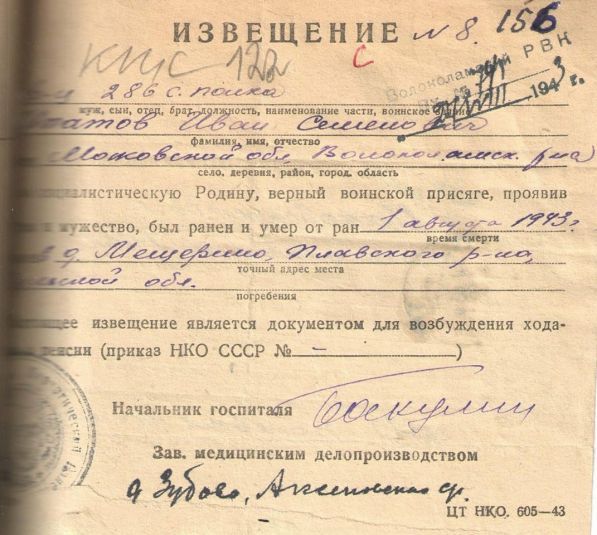 ИЗВЕЩЕНИЕ N 8. 156
КПУС 122 С
Волоколамский РВК
1943 г.
286 с. полка
муж, сын, отец, брат, должность, наименование части, воинское
атов Иван Семенович
фамилия, имя, отчество
Московской обл. Волоколамск. р-на
село, деревня, район, город, область
социалистическую Родину, верный воинской присяге, проявив
и мужество, был ранен и умер от ран 1 августа 1943 г.
время смерти
в д. Мещерино, Плавского р-на,
точный адрес места
ской обл.
погребения
щее извещение является документом для возбуждения хода-
пенсии (приказ НКО СССР № — )
Начальник госпиталя
Зав. медицинским делопроизводством
д Зубово, Аксеновская ф.
ЦТ НКО. 605—43